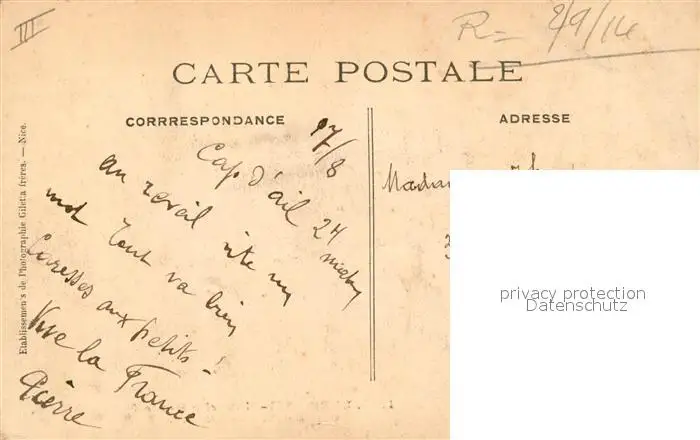 III
R = 2/9/14
CARTE POSTALE
CORRRESPONDANCE
ADRESSE
27/8
Cap d'ail 24
au reveil vite un
mot Tout va bien
Caresses aux petits !
Vive la France
Pierre
Etablissements de Photographie Giletta frères. — Nice.
privacy protection
Datenschutz